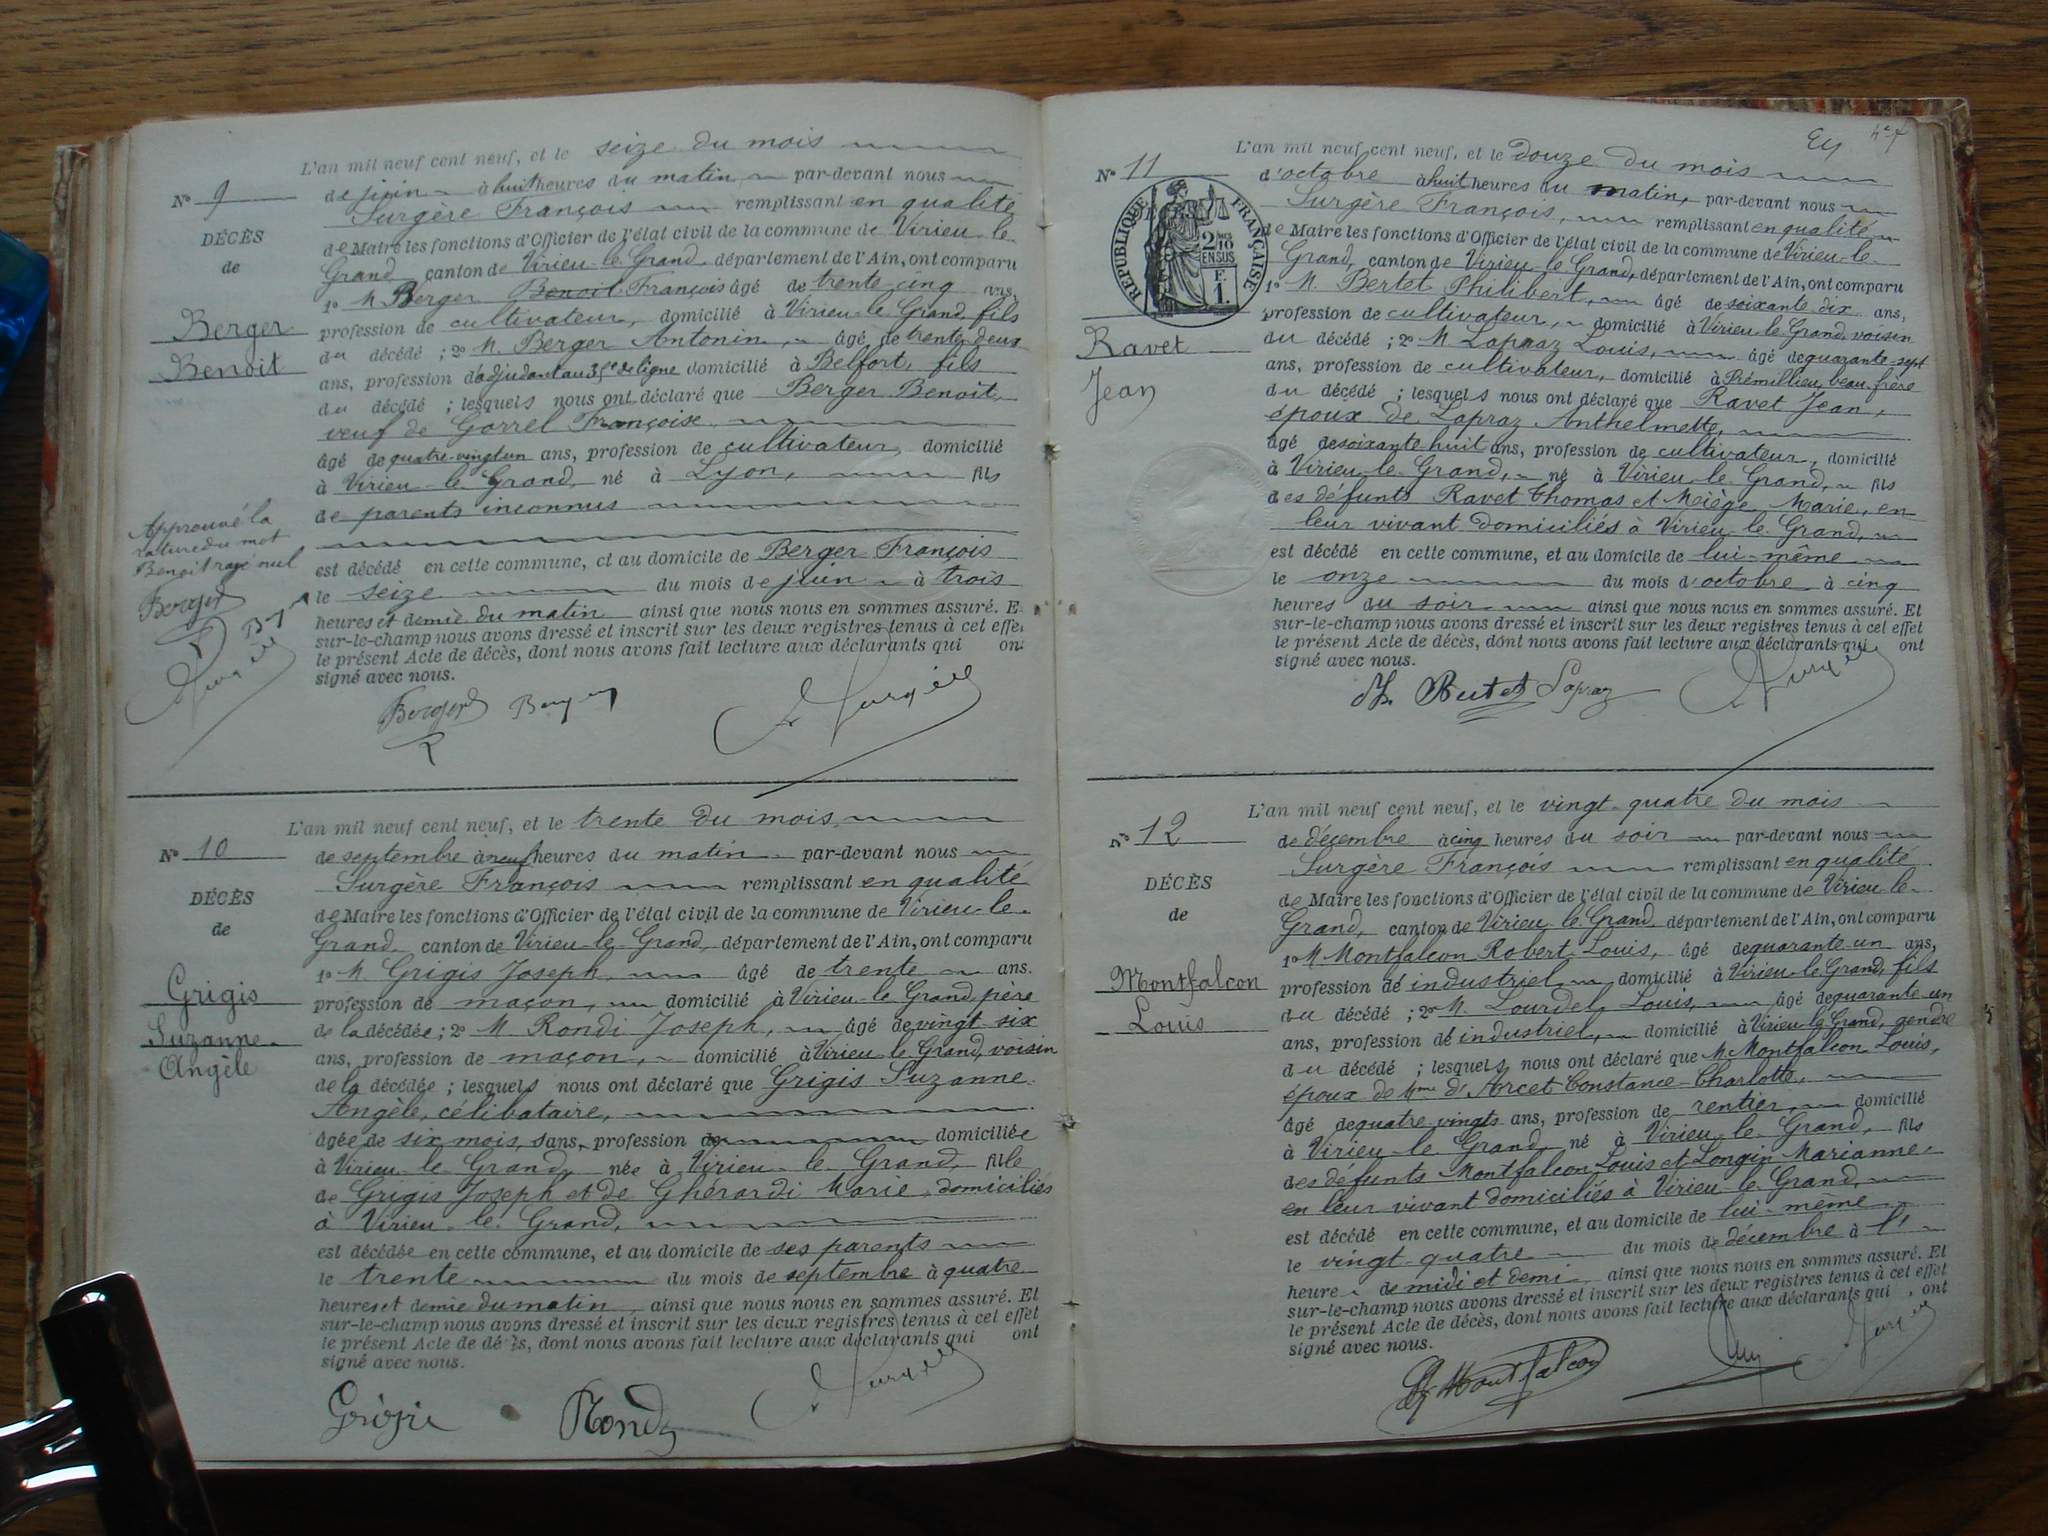 L'an mil neuf cent neuf, et le seize du mois
N° 9
de juin à huit heures du matin par-devant nous
Surgère François remplissant en qualité
DÉCÈS
de Maire les fonctions d'Officier de l'état civil de la commune de Virieu-le-
de
Grand canton de Virieu-le-Grand département de l'Ain, ont comparu
1° M. Berger Benoit François âgé de trente cinq ans,
Berger
profession de cultivateur, domicilié à Virieu-le-Grand, fils
du décédé ; 2° M. Berger Antonin, âgé de trente-deux
Benoit
ans, profession d'adjudant au 35e de ligne domicilié à Belfort, fils
du décédé ; lesquels nous ont déclaré que Berger Benoit,
veuf de Gorrel Françoise
âgé de quatre-vingt un ans, profession de cultivateur, domicilié
à Virieu-le-Grand, né à Lyon, fils
de parents inconnus
Approuvé la
rature du mot
Benoit rayé nul
Berger
est décédé en cette commune, et au domicile de Berger François
le seize du mois de juin à trois
heures et demie du matin ainsi que nous nous en sommes assuré. E
sur-le-champ nous avons dressé et inscrit sur les deux registres tenus à cet effe
le présent Acte de décès, dont nous avons fait lecture aux déclarants qui on
signé avec nous.
Berger Berger Surgère
L'an mil neuf cent neuf, et le trente du mois
N° 10
de septembre à neuf heures du matin par-devant nous
Surgère François remplissant en qualité
DÉCÈS
de Maire les fonctions d'Officier de l'état civil de la commune de Virieu-le-
de
Grand canton de Virieu-le-Grand, département de l'Ain, ont comparu
1° M. Grigis Joseph, âgé de trente ans.
Grigis
profession de maçon, domicilié à Virieu-le-Grand, père
Suzanne
de la décédée ; 2° M Rondi Joseph, âgé de vingt-six
Angèle
ans, profession de maçon, domicilié à Virieu-le-Grand, voisin
de la décédée ; lesquels nous ont déclaré que Grigis Suzanne
Angèle, célibataire,
âgée de six mois, sans profession de domiciliée
à Virieu-le-Grand, née à Virieu-le-Grand, fille
de Grigis Joseph et de Ghérardi Marie, domiciliés
à Virieu-le-Grand,
est décédée en cette commune, et au domicile de ses parents
le trente du mois de septembre à quatre
heures et demie du matin, ainsi que nous nous en sommes assuré. Et
sur-le-champ nous avons dressé et inscrit sur les deux registres tenus à cet effet
le présent Acte de décès, dont nous avons fait lecture aux déclarants qui ont
signé avec nous.
Grigis Rondi Surgère
L'an mil neuf cent neuf, et le douze du mois
N° 11
d'octobre à huit heures du matin, par-devant nous
Surgère François, remplissant en qualité
RÉPUBLIQUE FRANÇAISE
2/10 EN SUS
F. 1.
de Maire les fonctions d'Officier de l'état civil de la commune de Virieu-le-
Grand, canton de Virieu-le-Grand, département de l'Ain, ont comparu
1° M. Bertet Philibert, âgé de soixante-dix ans,
profession de cultivateur, domicilié à Virieu-le-Grand, voisin
Ravet
du décédé ; 2° M Lapraz Louis, âgé de quarante-sept
Jean
ans, profession de cultivateur, domicilié à Prémillieu, beau-frère
du décédé ; lesquels nous ont déclaré que Ravet Jean,
époux de Lapraz Anthelmette,
âgé de soixante-huit ans, profession de cultivateur, domicilié
à Virieu-le-Grand, né à Virieu-le-Grand, fils
des défunts Ravet Thomas et Meiège Marie, en
leur vivant domiciliés à Virieu-le-Grand,
est décédé en cette commune, et au domicile de lui-même
le onze du mois d'octobre à cinq
heures du soir ainsi que nous nous en sommes assuré. Et
sur-le-champ nous avons dressé et inscrit sur les deux registres tenus à cet effet
le présent Acte de décès, dont nous avons fait lecture aux déclarants qui ont
signé avec nous.
Ph. Bertet Lapraz Surgère
L'an mil neuf cent neuf, et le vingt-quatre du mois
N° 12
de décembre à cinq heures du soir par-devant nous
Surgère François remplissant en qualité
DÉCÈS
de Maire les fonctions d'Officier de l'état civil de la commune de Virieu-le-
de
Grand, canton de Virieu-le-Grand, département de l'Ain, ont comparu
1° M Montfalcon Robert-Louis, âgé de quarante-un ans,
Montfalcon
profession de industriel domicilié à Virieu-le-Grand, fils
Louis
du décédé ; 2° M. Lourdel Louis, âgé de quarante-un
ans, profession de industriel, domicilié à Virieu-le-Grand, gendre
du décédé ; lesquels nous ont déclaré que M Montfalcon Louis,
époux de Mme d'Arcet Constance-Charlotte,
âgé de quatre-vingts ans, profession de rentier, domicilié
à Virieu-le-Grand, né à Virieu-le-Grand, fils
des défunts Montfalcon Louis et Longin Marianne,
en leur vivant domiciliés à Virieu-le-Grand,
est décédé en cette commune, et au domicile de lui-même
le vingt-quatre du mois de décembre à l'
heure de midi et demi ainsi que nous nous en sommes assuré. Et
sur-le-champ nous avons dressé et inscrit sur les deux registres tenus à cet effet
le présent Acte de décès, dont nous avons fait lecture aux déclarants qui ont
signé avec nous.
R. Montfalcon Surgère